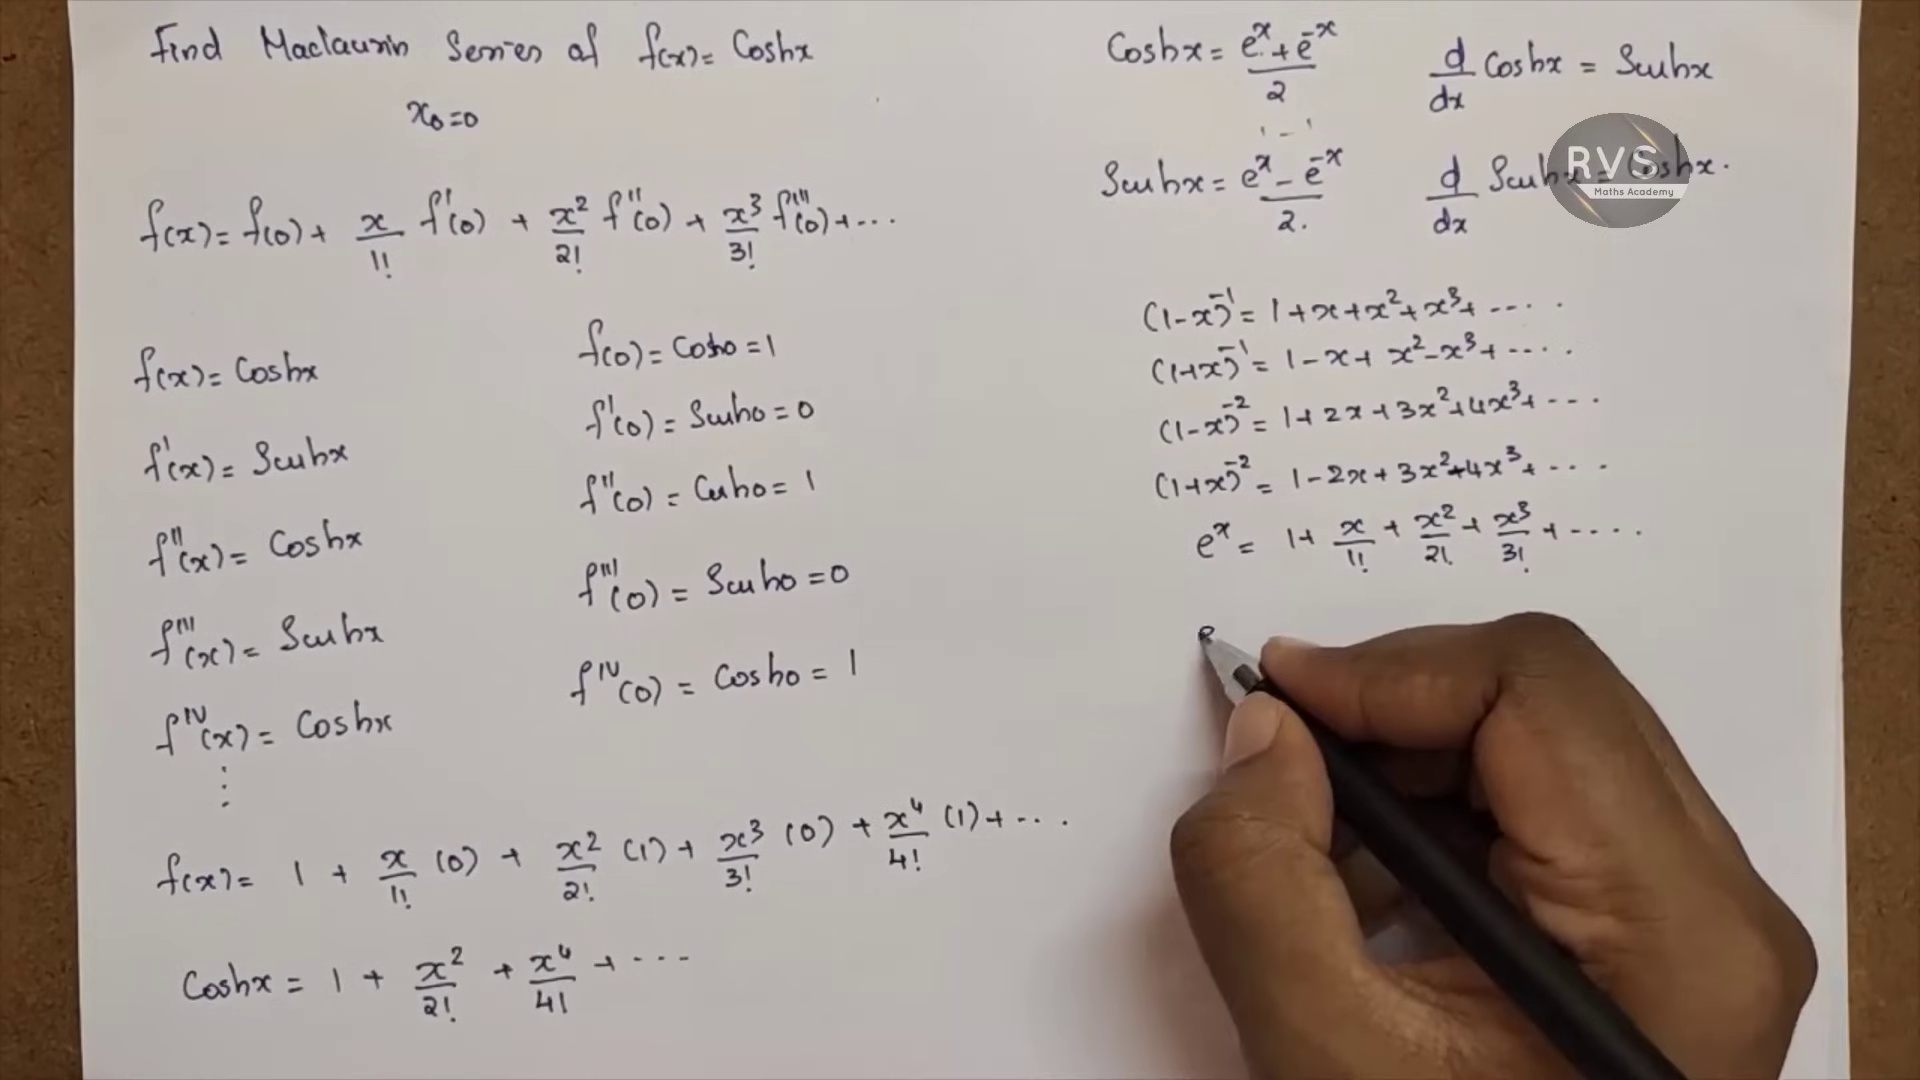 Find Maclaurin Series of f(x) = Coshx
x₀=0
f(x) = f(0) + x/1! f'(0) + x²/2! f''(0) + x³/3! f'''(0) + ...
f(x) = Coshx
f'(x) = Sinhx
f''(x) = Coshx
f'''(x) = Sinhx
f^IV(x) = Coshx
⋮
f(0) = Cosh0 = 1
f'(0) = Sinh0 = 0
f''(0) = Cosh0 = 1
f'''(0) = Sinh0 = 0
f^IV(0) = Cosh0 = 1
f(x) = 1 + x/1! (0) + x²/2! (1) + x³/3! (0) + x⁴/4! (1) + ...
Coshx = 1 + x²/2! + x⁴/4! + ...
Coshx = (e^x + e^-x)/2 d/dx Coshx = Sinhx
Sinhx = (e^x - e^-x)/2. d/dx Sinhx = Coshx.
RVS
Maths Academy
(1-x)^-1 = 1+x+x²+x³+ ....
(1+x)^-1 = 1-x+x²-x³+ ....
(1-x)^-2 = 1+2x+3x²+4x³+ ...
(1+x)^-2 = 1-2x+3x²-4x³+ ...
e^x = 1 + x/1! + x²/2! + x³/3! + ....
e